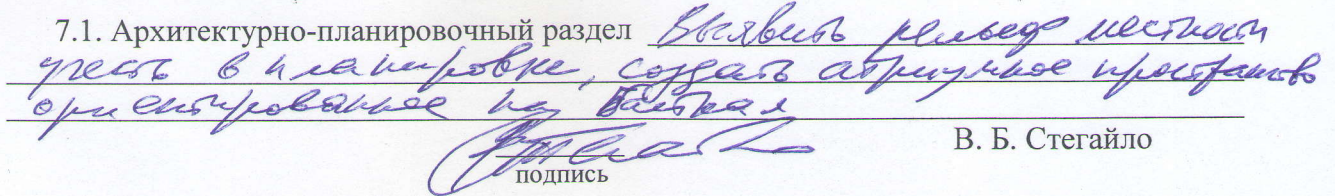 7.1. Архитектурно-планировочный раздел Выявить рельеф местности
учесть в планировке, создать атриумное пространство
ориентированное на Байкал
В. Б. Стегайло
подпись